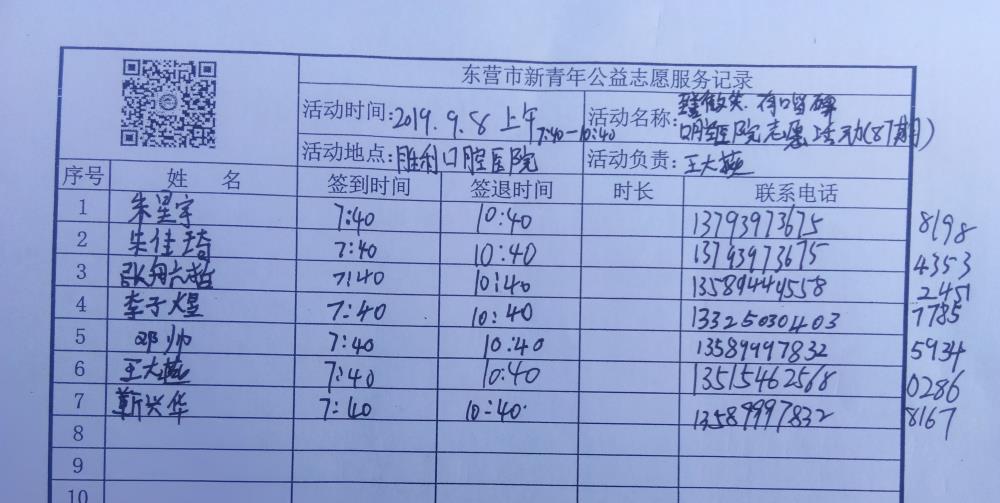 东营市新青年公益志愿服务记录
活动时间:2019.9.8 上午 7:40-10:40
活动名称:微笑.有口皆碑
口腔医院志愿活动(87期)
活动地点:胜利口腔医院
活动负责:王大燕
序号 姓 名 签到时间 签退时间 时长 联系电话
1 朱星宇 7:40 10:40 13793973675 8198
2 朱佳琦 7:40 10:40 13793973675 4353
3 7:40 10:40 13589444558 2451
4 李子煜 7:40 10:40 13325030403 7785
5 邓帅 7:40 10:40 13589997832 5934
6 王大燕 7:40 10:40 13515462568 0286
7 靳兴华 7:40 10:40 13589997832 8167
8
9
10